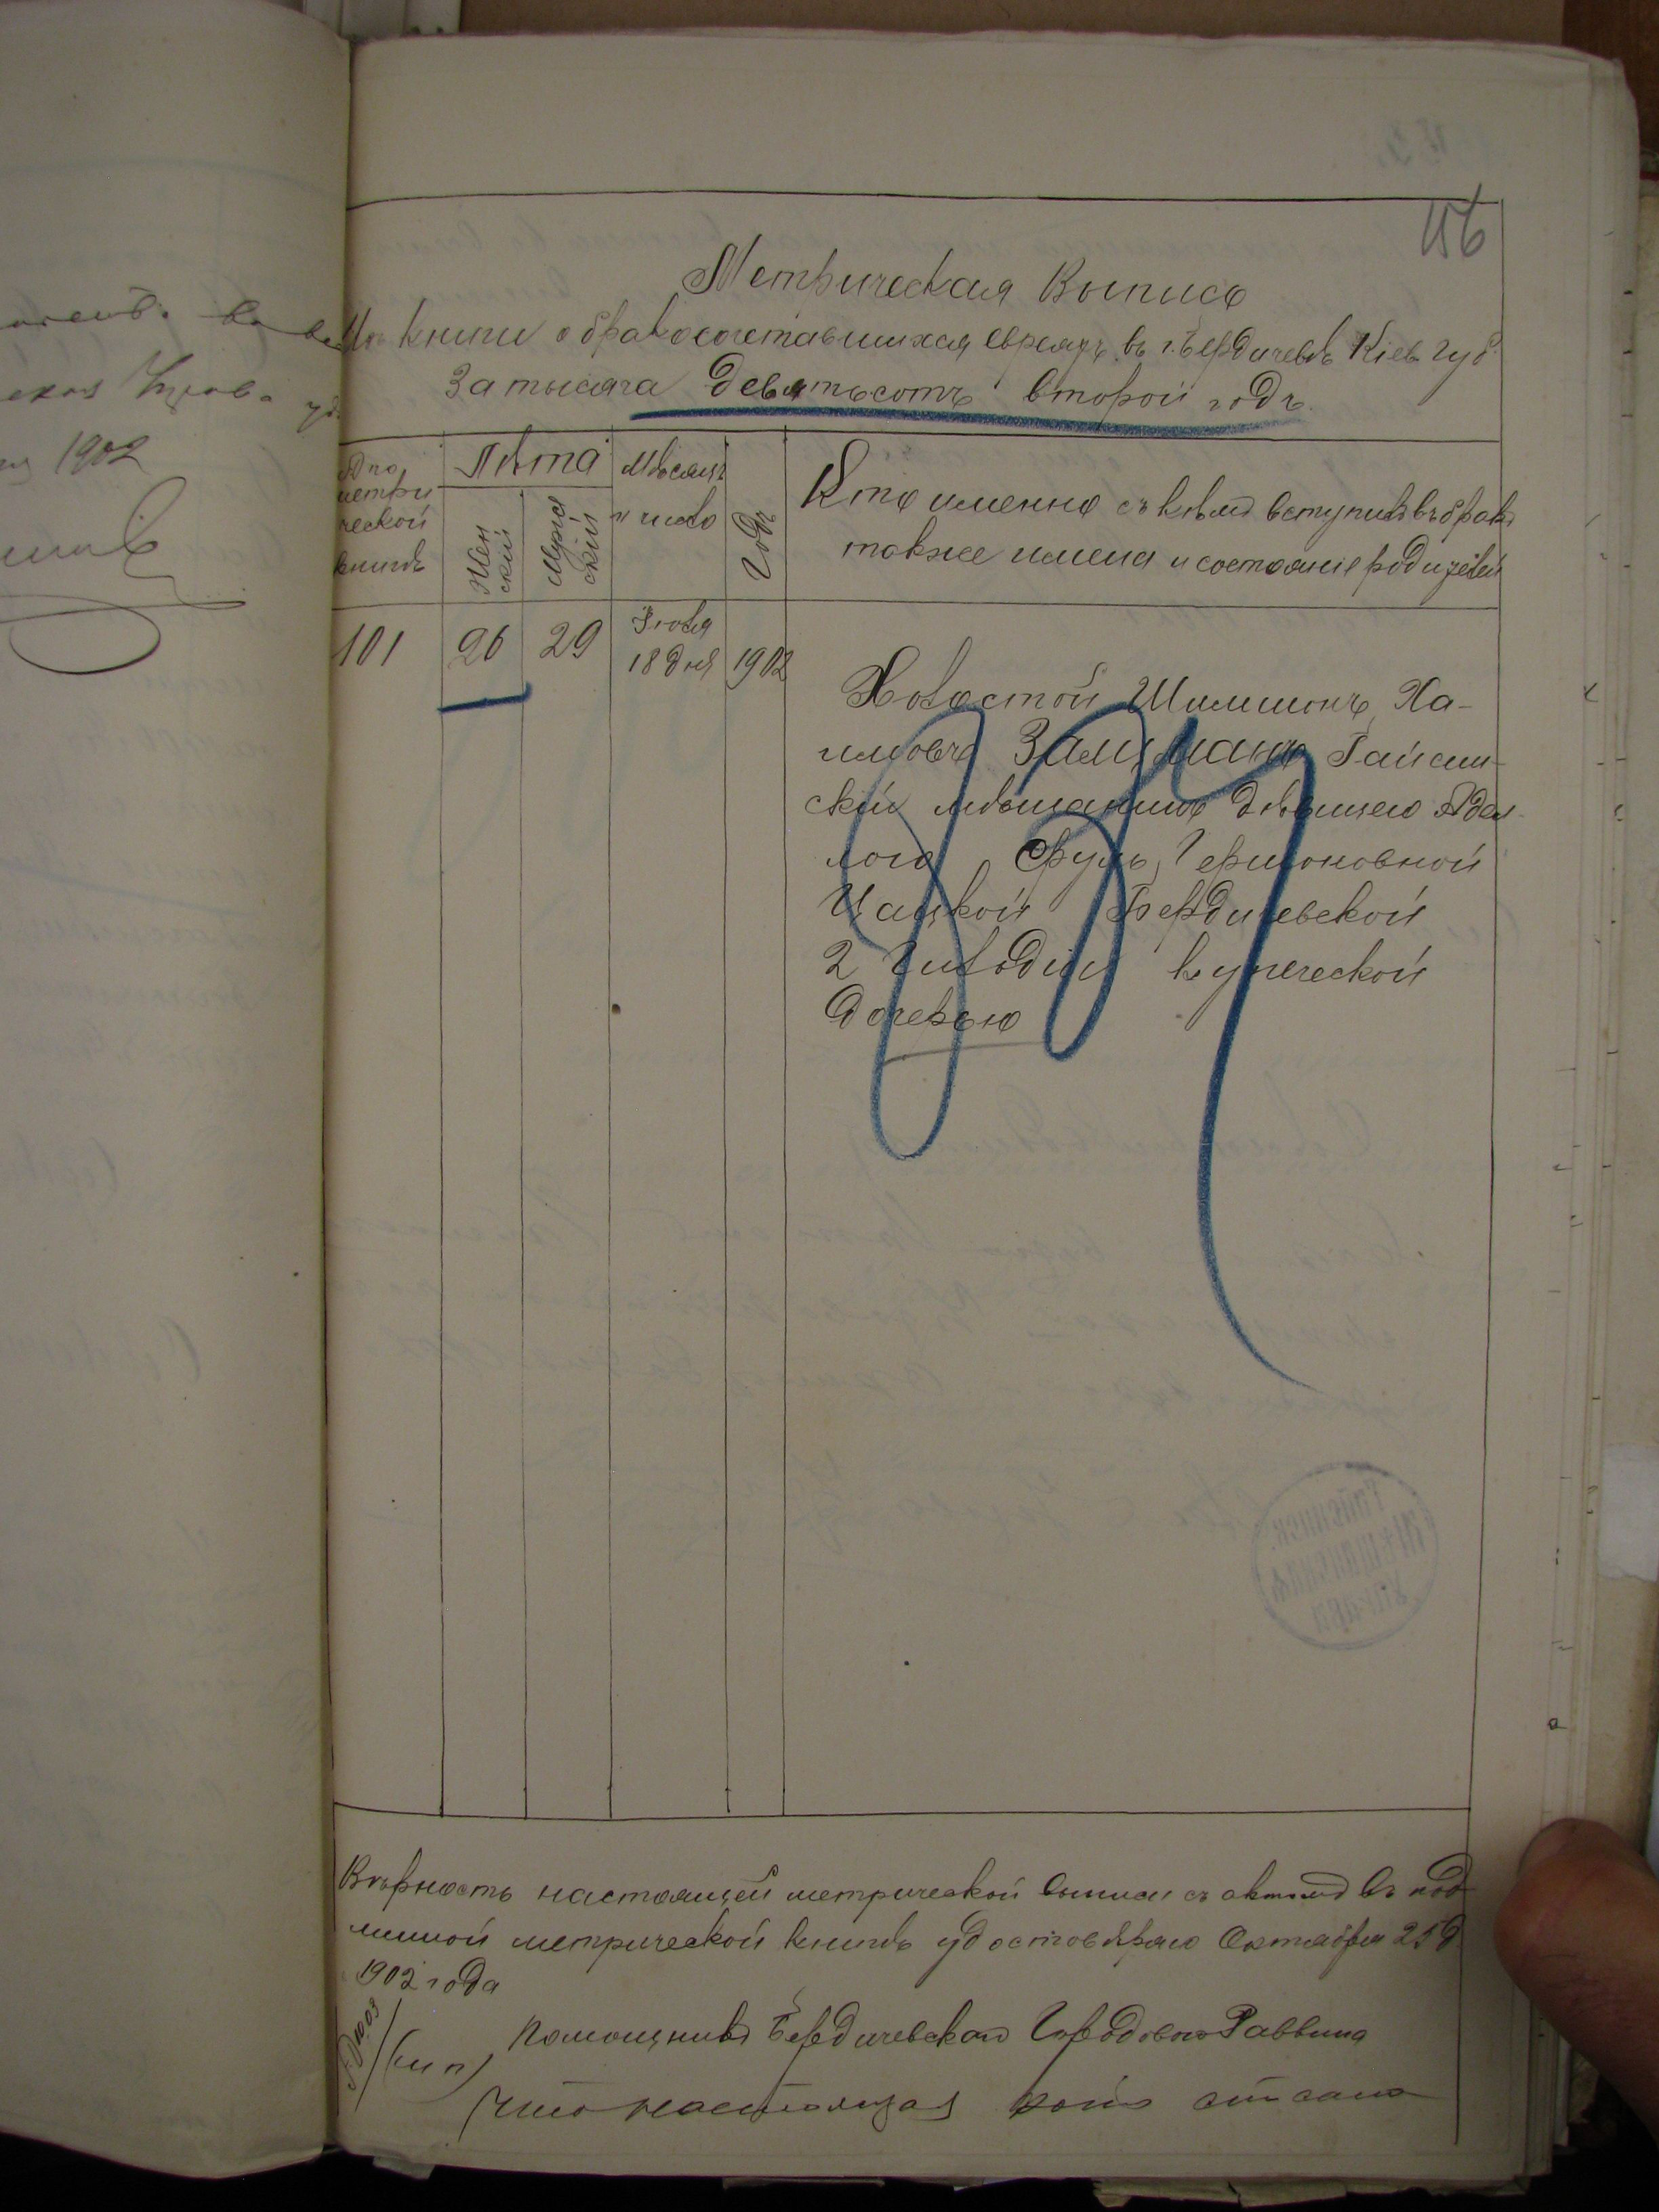 156
Метрическая Выпись
Изъ книги о бракосочетавшихся евреяхъ въ г. Бердичевѣ Кіев. Губ.
За тысяча девятьсотъ второй годъ.
№ по метрической книгѣ
Лѣта
Женскій
Мужскій
Мѣсяцъ и число
Годъ
Кто именно съ кѣмъ вступилъ въ бракъ
также имена и состояніе родителей
101 26 29 Іюля 18 дня 1902
Холостой Шимшонъ Ха-
имовъ Залцманъ Гайсин-
скій мѣщанинъ
Гершоновной
Цацкой Бердичевской
2 Гильдіи купеческой
дочерью
Вѣрность настоящей метрической выписи съ актомъ въ под-
линной метрической книгѣ удостовѣряю Октября 25 д.
1902 года
(м п) Помощникъ Бердичевскаго Городоваго Раввина
Что настоящая копія списана
1902